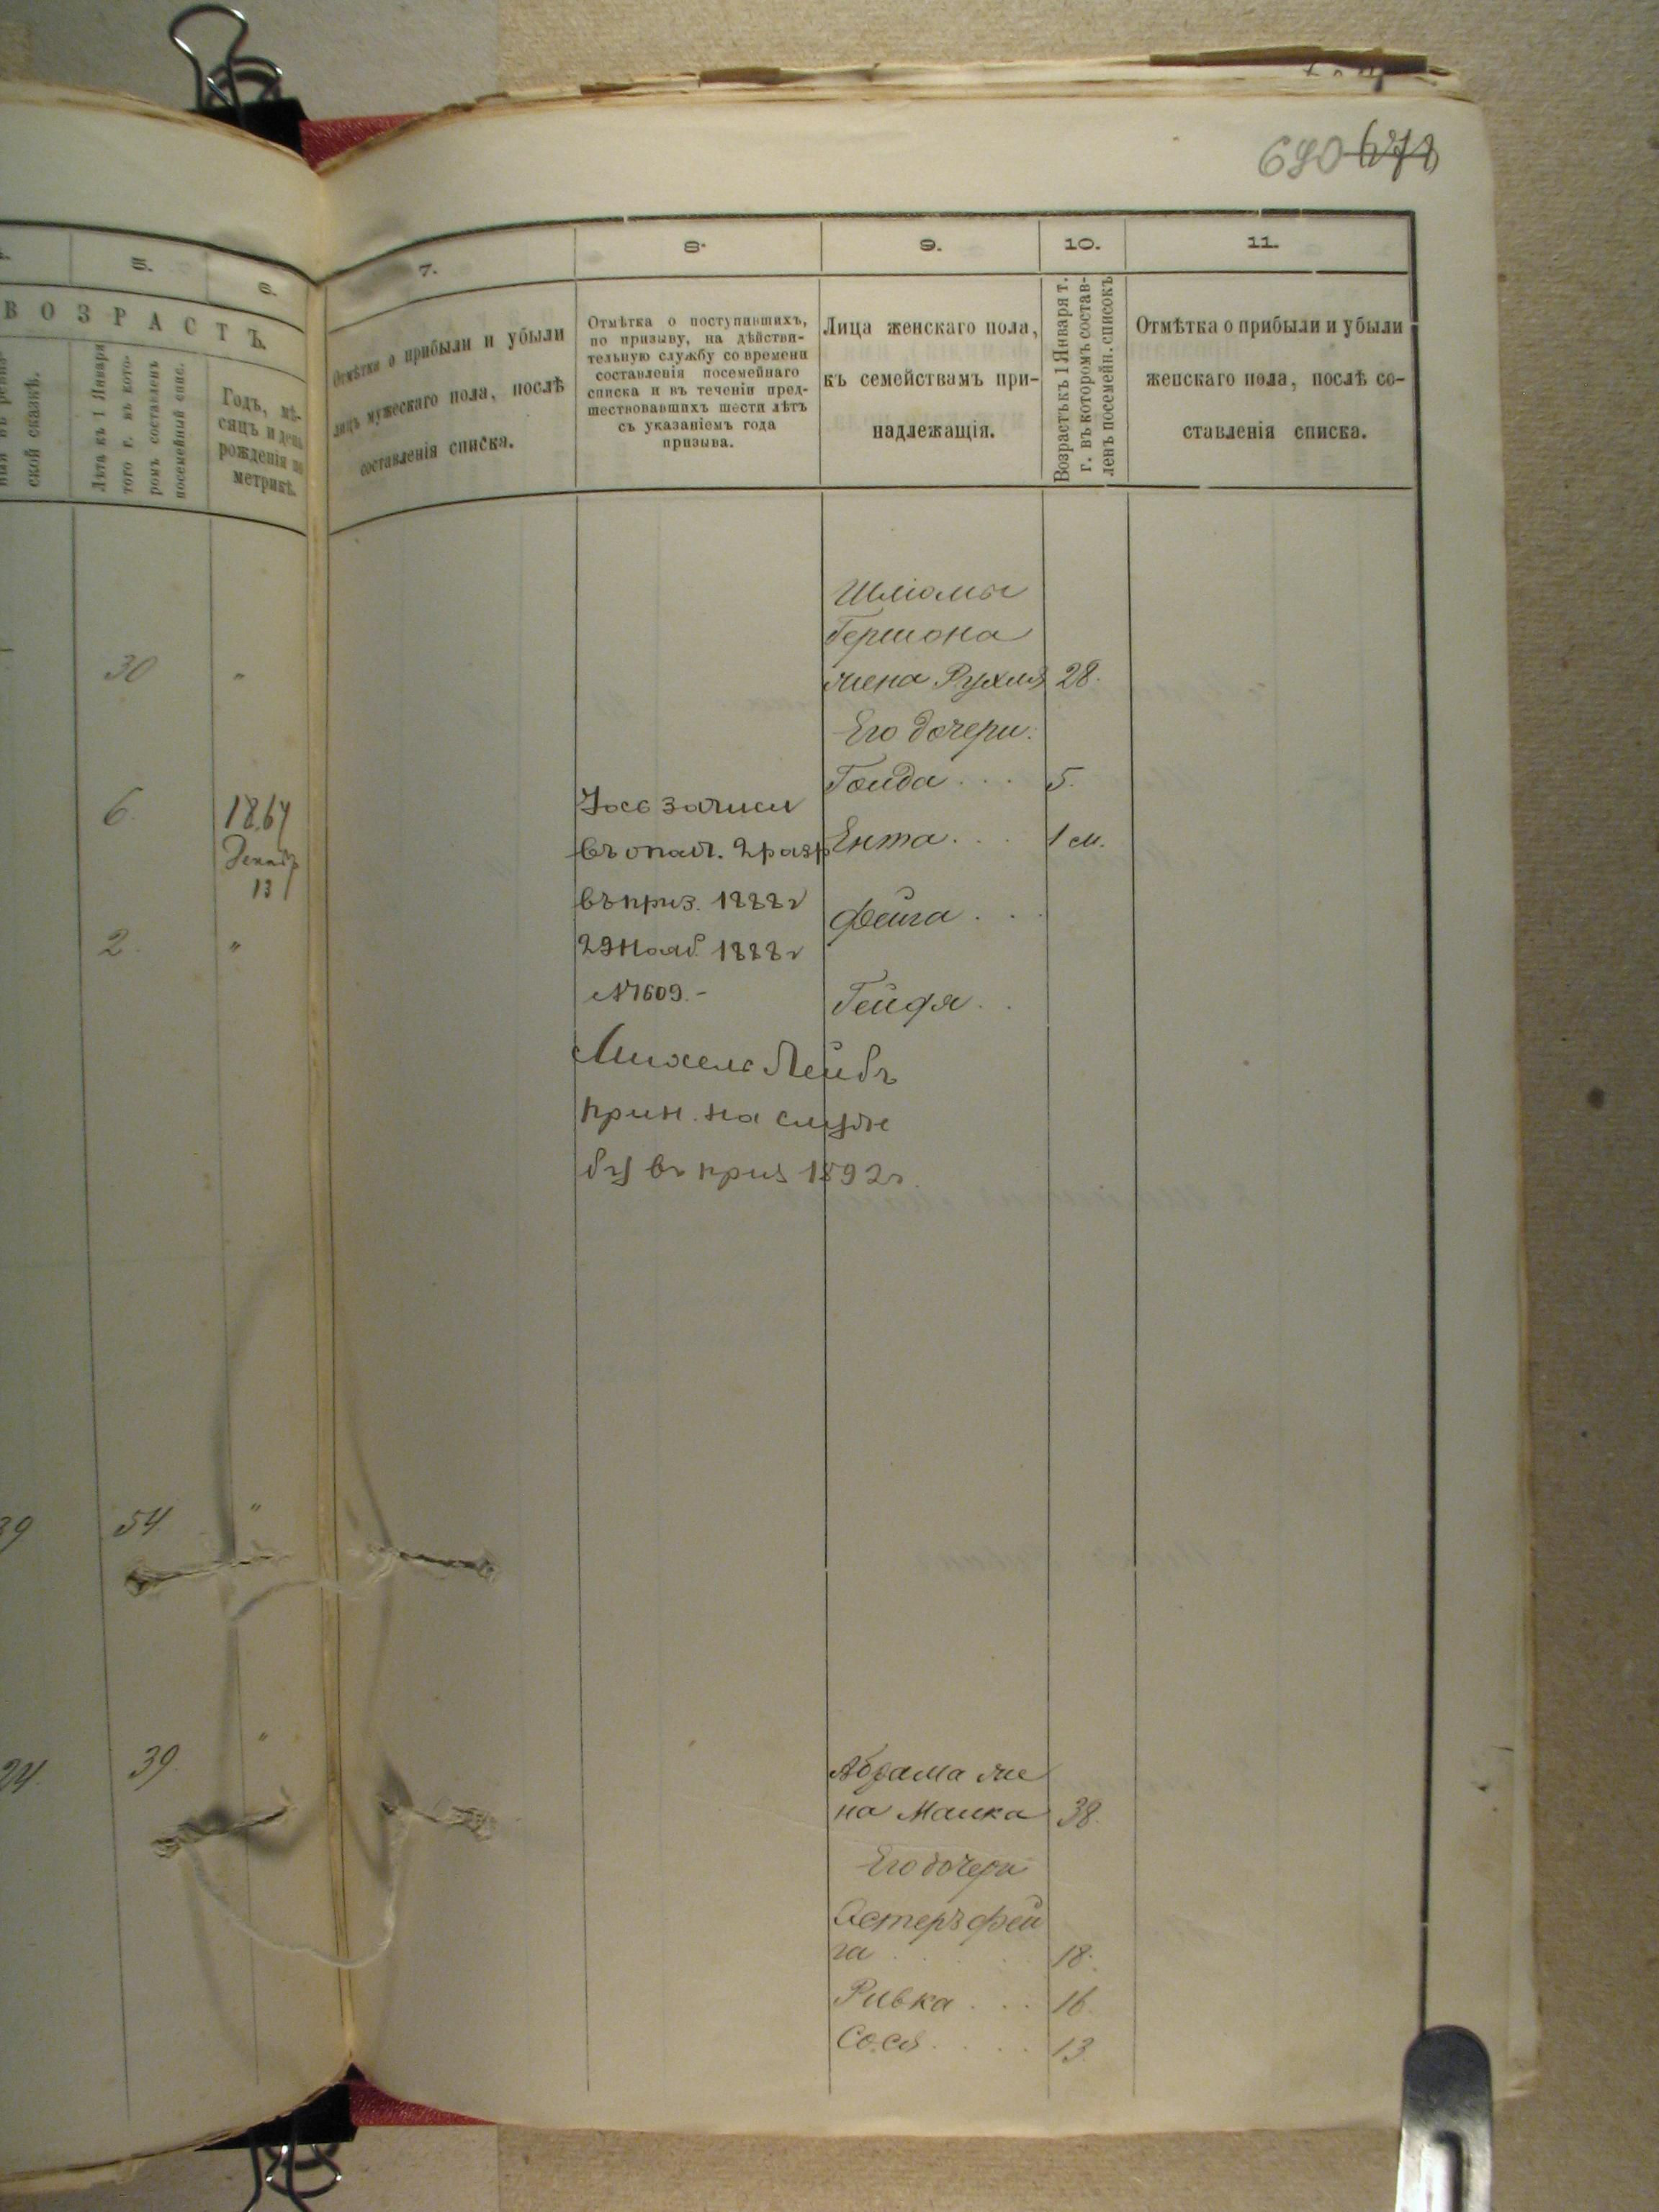 680 678
5.
6.
7.
8.
9.
10.
11.
ВОЗРАСТЪ.
ской сказкѣ.
Лѣта къ 1 Января
того г. въ кото-
ромъ составленъ
посемейный спис.
Годъ, мѣ-
сяцъ и день
рожденія по
метрикѣ.
Отмѣтка о прибыли и убыли
лицъ мужескаго пола, послѣ
составленія списка.
Отмѣтка о поступившихъ,
по призыву, на дѣйстви-
тельную службу со времени
составленія посемейнаго
списка и въ теченіи пред-
шествовавшихъ шести лѣтъ
съ указаніемъ года
призыва.
Лица женскаго пола,
къ семействамъ при-
надлежащія.
Возрастъ къ 1 Января т.
г. въ которомъ состав-
ленъ посемейн. списокъ
Отмѣтка о прибыли и убыли
женскаго пола, послѣ со-
ставленія списка.
30 "
6. 1867
Декабр
13
2. "
39 54 "
24. 39. "
Іосъ зачисл
въ опол. 2 разр
въ приз. 1888 г
29 Нояб. 1888 г
№ 1609.-
Михель Лейбъ
прин. на служ
бу въ приз 1892 г.
Шліомы
Гершона
жена Рухля 28.
Его дочери:
Голда . . . 5.
Ента . . . 1 м.
Фейга . . .
Гейдя . .
Абрама же
на Малка 38.
Его дочери
Эстеръ Фей
га . . . . 18.
Ривка . . . 16.
Сося . . . . 13